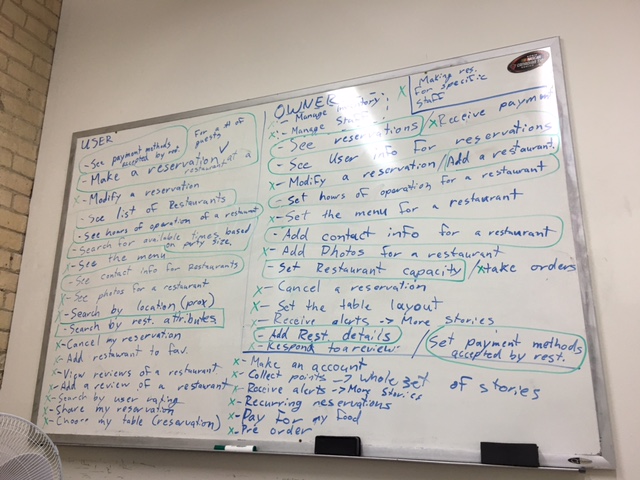 USER
- See payment methods
accepted by rest.
For a # of
guests
- Make a reservation ✓
at a
restaurant
x- Modify a reservation
- See list of Restaurants
- See hours of operation of a restaurant
- Search for available times based
on party size.
x- See the menu
- See contact info for Restaurants
x- See photos for a restaurant
x- Search by location (prox)
- Search by rest. attributes
x- Cancel my reservation
x- Add restaurant to fav.
x- View reviews of a restaurant
x- Add a review of a restaurant
x- Search by user rating
x- Share my reservation
x- Choose my table (reservation)
OWNER
x- Manage inventory
x- Manage
x Making res.
for specific
staff
- See reservations / x Receive payment
- See User info for reservations
x- Modify a reservation / Add a restaurant
- Set hours of operation for a restaurant
x- Set the menu for a restaurant
- Add contact info for a restaurant
x- Add Photos for a restaurant
- Set Restaurant capacity / x take orders
x- Cancel a reservation
x- Set the table layout
x- Receive alerts -> More stories
- Add Rest. details
x- Respond to a review
/ Set payment methods
accepted by rest.
x- Make an account
x- Collect points -> whole set of stories
x- Receive alerts -> More stories
x- Recurring reservations
x- Pay for my food
x- Pre order